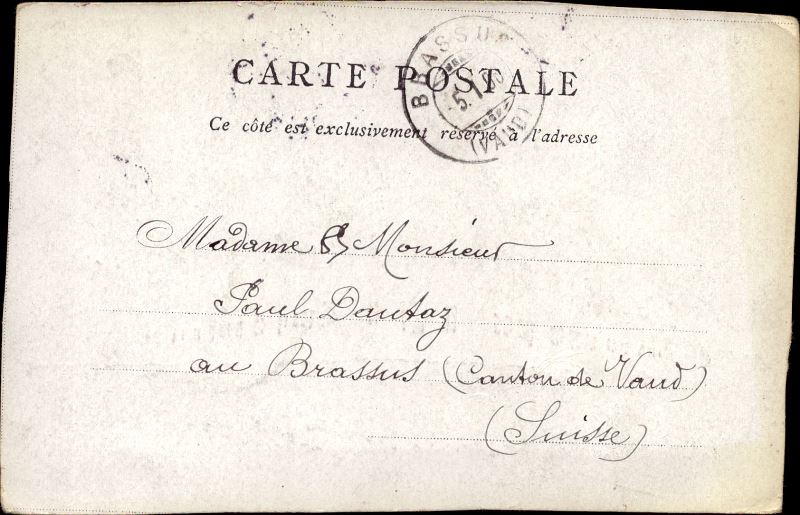 BRASSUS
5.1.00
(VAUD)
CARTE POSTALE
Ce côté est exclusivement réservé à l'adresse
Madame & Monsieur
Paul Dautaz
au Brassus (Canton de Vaud)
(Suisse)